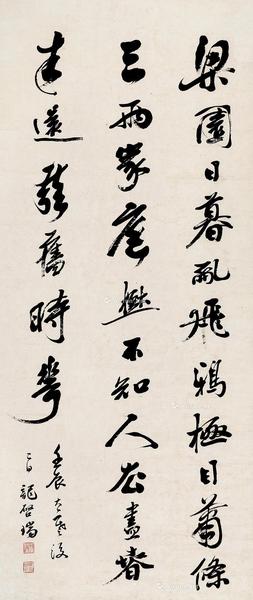 梁園日暮亂飛鴉極目蕭條
三兩家庭樹不知人去盡春
來還發舊時華
壬辰後
日龍啓瑞